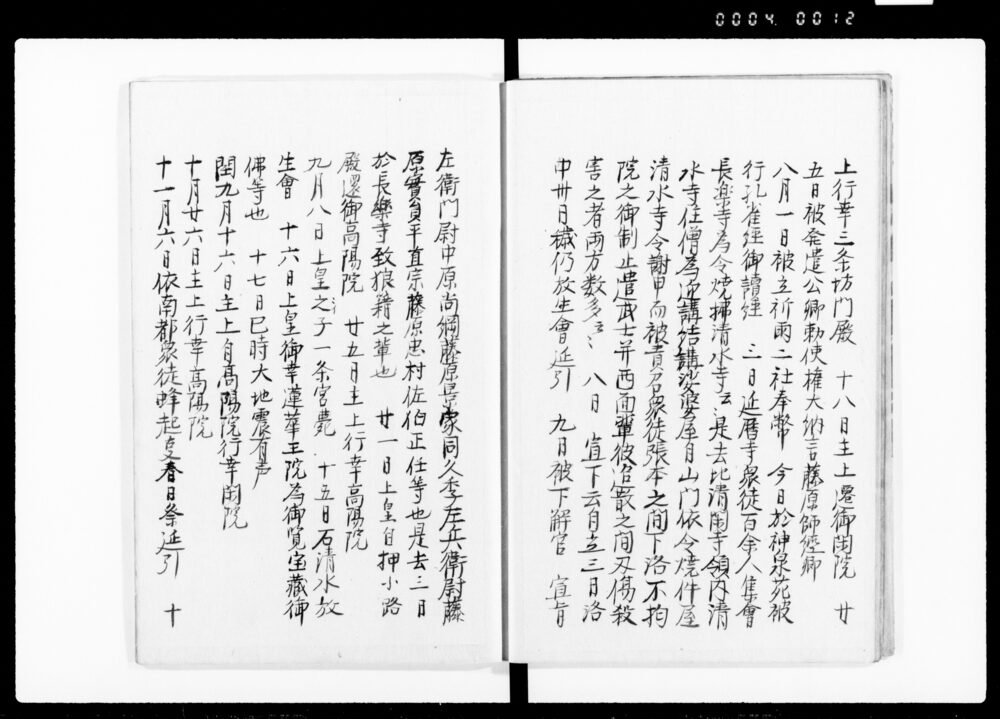 0004 0012
上行幸三条坊門殿　十八日主上遷御閑院　廿
五日被発遣公卿勅使権大納言藤原師経卿
八月一日被立祈雨二社奉幣　今日於神泉苑被
行孔雀経御讀経　三日延暦寺衆徒百余人集會
長楽寺為令焼拂清水寺云是去比清閑寺領内清
水寺住僧為迎講結講娑婆屋自山門依令焼件屋
清水寺令謝申而被責召衆徒張本之間下洛不拘
院之御制止遣武士并西面輩被召散之間又傷殺
害之者両方数多云〻　八日　宣下云自立三日洛
中卅日穢仍放生會延引　九日被下解官　宣旨
左衛門尉中原尚綱藤原景家同久季左兵衛尉藤
原實員平直宗藤原忠村佐伯正任等也是去三日
於長樂寺致狼籍之輩也　廿一日上皇自押小路
殿還御高陽院　廿五日主上行幸高陽院
九月八日上皇之子一条宮薨　十五日石清水放
生會　十六日上皇御幸蓮華王院為御覧宝藏御
佛等也　十七日巳時大地震有声
閏九月十六日主上自高陽院行幸閑院
十月廿六日主上行幸高陽院
十一月六日依南都衆徒蜂起春日祭延引　十